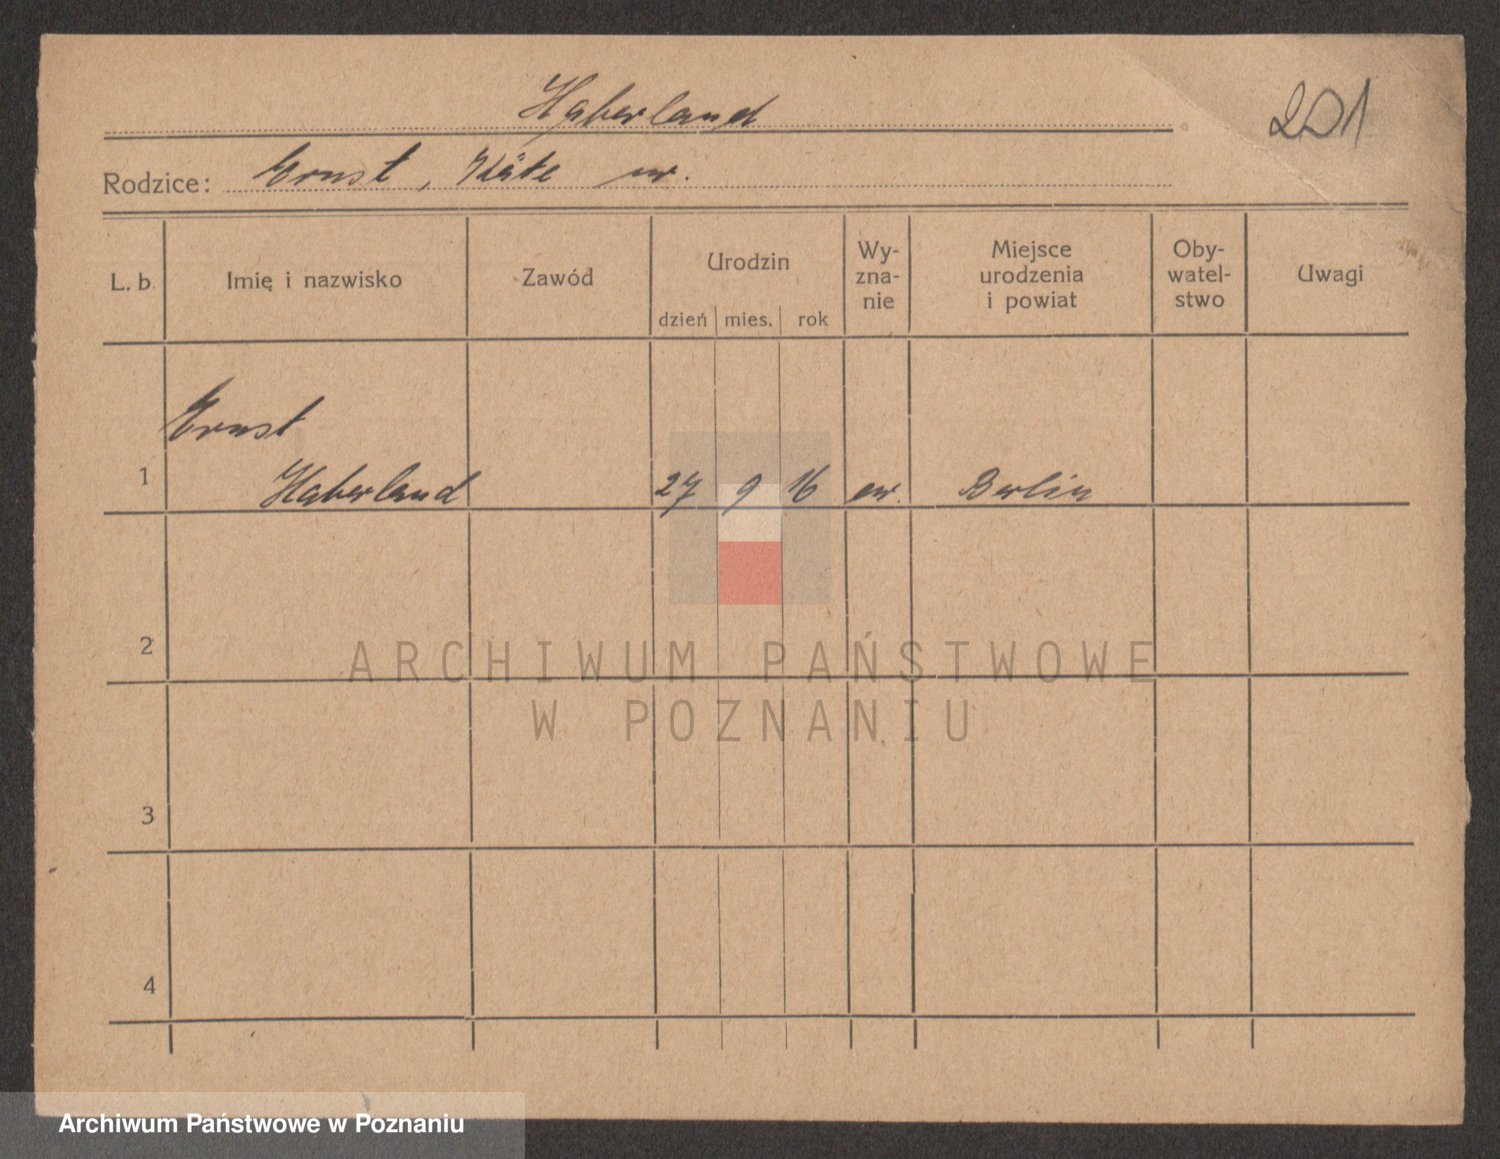 Haberland
201
Rodzice: Ernst, Käte ur.
L. b. Imię i nazwisko Zawód Urodzin Wy-zna-nie Miejsce urodzenia i powiat Oby-watel-stwo Uwagi
dzień mies. rok
Ernst
1 Haberland 27 9 16 ew. Berlin
2
ARCHIWUM PAŃSTWOWE
W POZNANIU
3
4
Archiwum Państwowe w Poznaniu